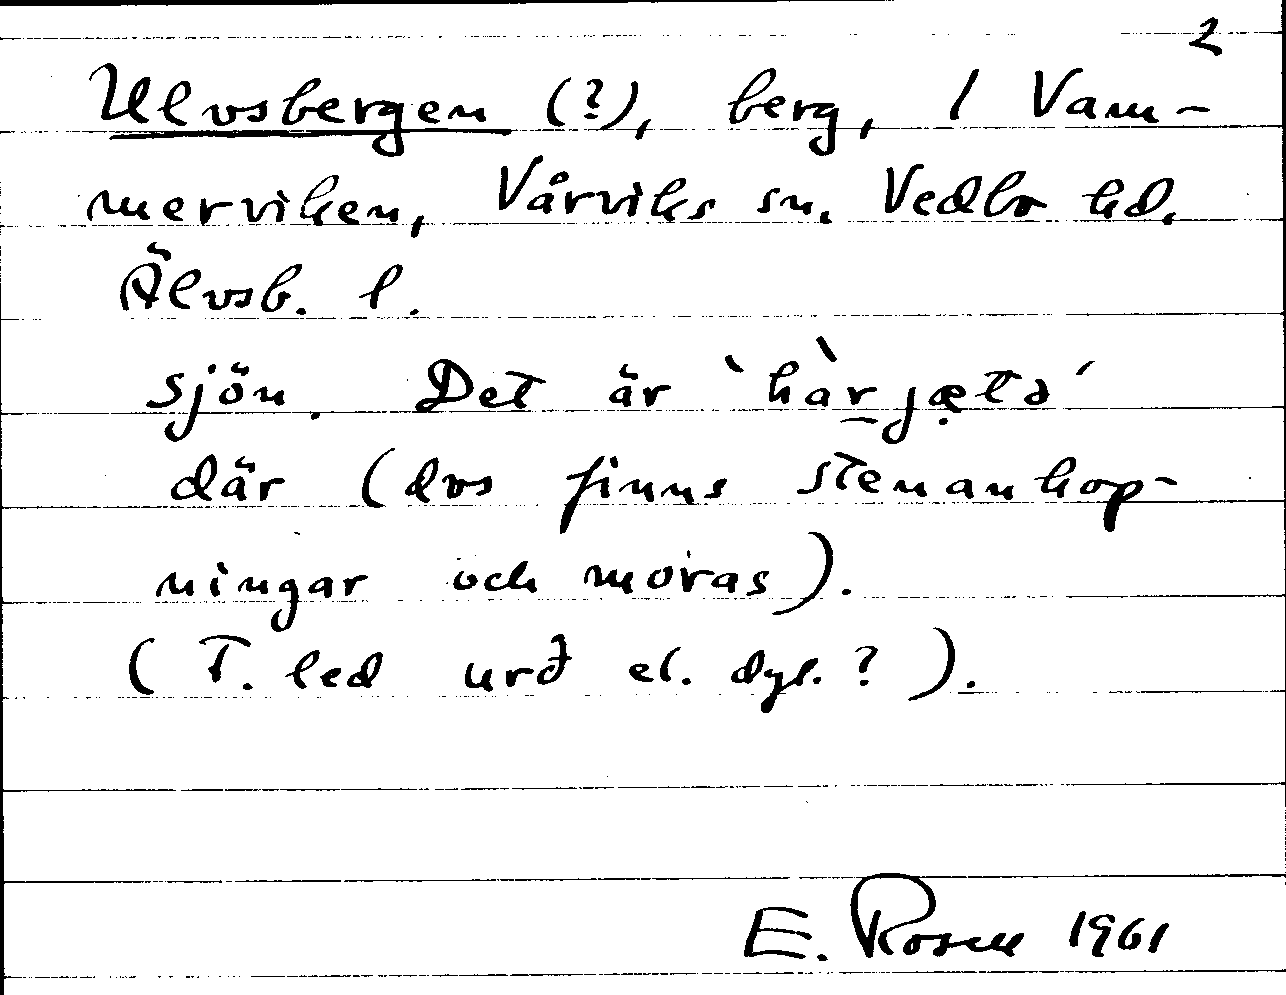 2
Ulvsbergen (?), berg, 1 Vam-
merviken, Vårviks sn. Vedbo hd.
Älvsb. l.
sjön. Det är `hàr̲jæ̣tə´
där (dvs finns stenanhop-
ningar och moras).
(T. led urð el. dyl. ?).
E. Rosell 1961